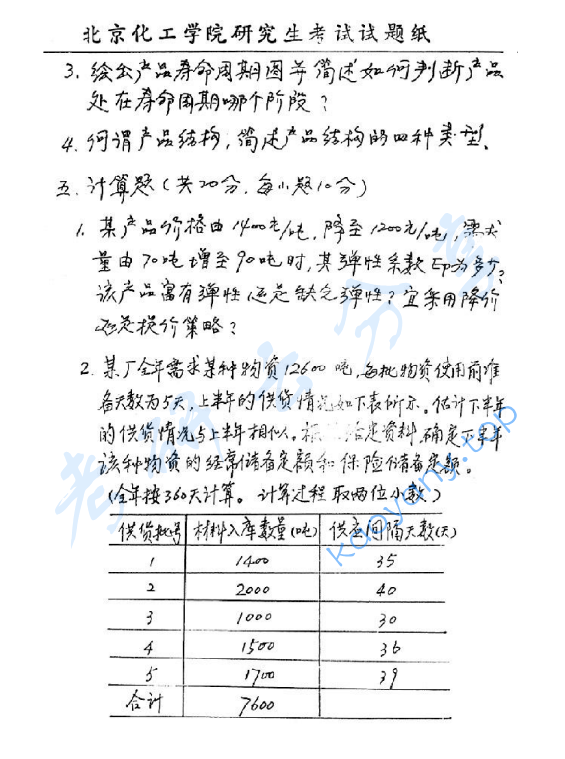 北京化工学院研究生考试试题纸
3. 绘出产品寿命周期图并简述如何判断产品
处在寿命周期哪个阶段？
4. 何谓产品结构，简述产品结构的四种类型。
五. 计算题（共20分，每小题10分）
1. 某产品价格由1400元/吨，降至1200元/吨，需求
量由70吨增至90吨时，其弹性系数Ep为多少？
该产品富有弹性还是缺乏弹性？宜采用降价
还是提价策略？
2. 某厂全年需求某种物资12600吨，每批物资使用前准
备天数为5天，上半年的供货情况如下表所示。估计下半年
的供货情况与上半年相似。根据给定资料，确定下半年
该种物资的经常储备定额和保险储备定额。
（全年按360天计算。计算过程取两位小数。）
供货批号 材料入库数量(吨) 供应间隔天数(天)
1 1400 35
2 2000 40
3 1000 30
4 1500 36
5 1700 39
合计 7600
考研云分享
kaoyany.top